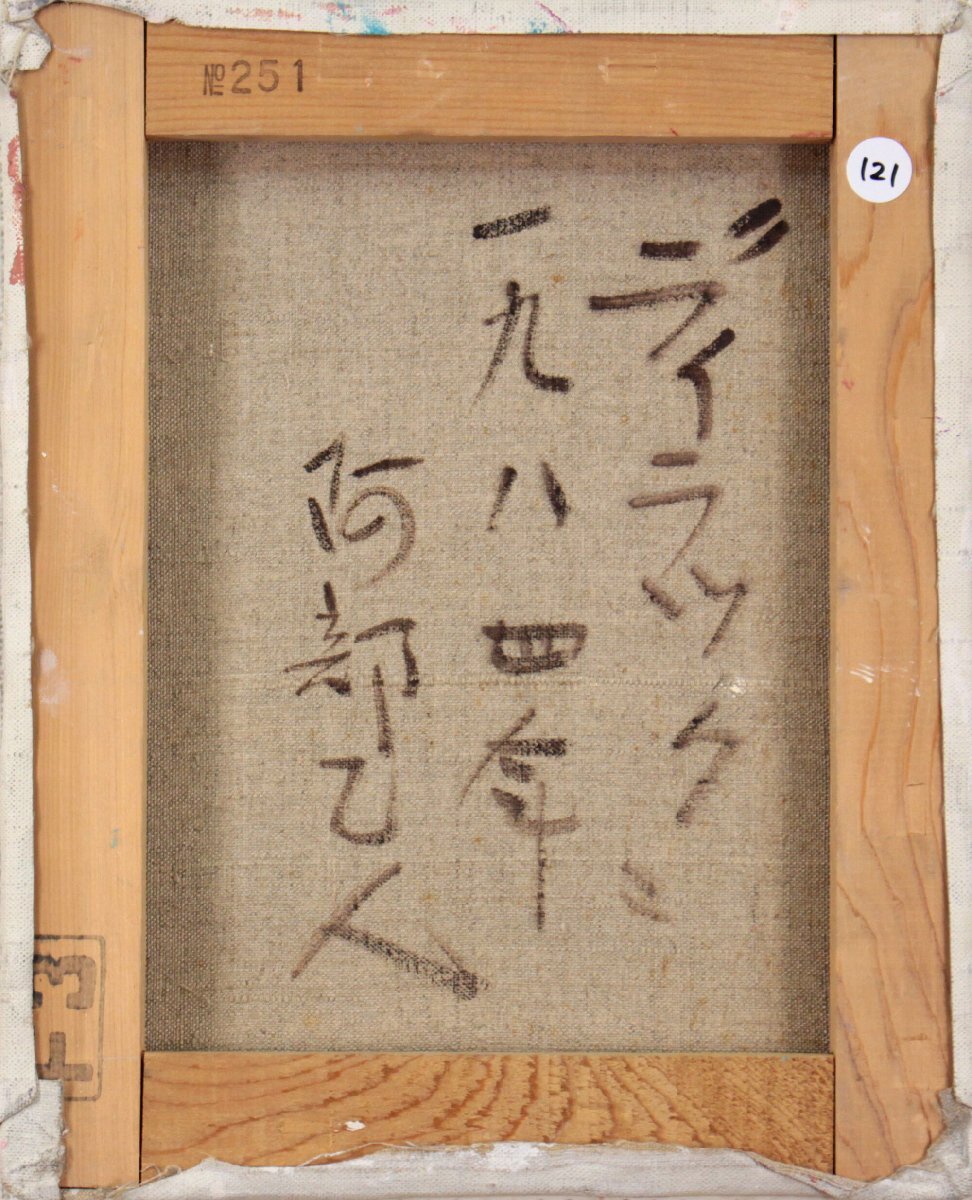 №251
121
ディラック
一九八四年
阿部乙人
F3